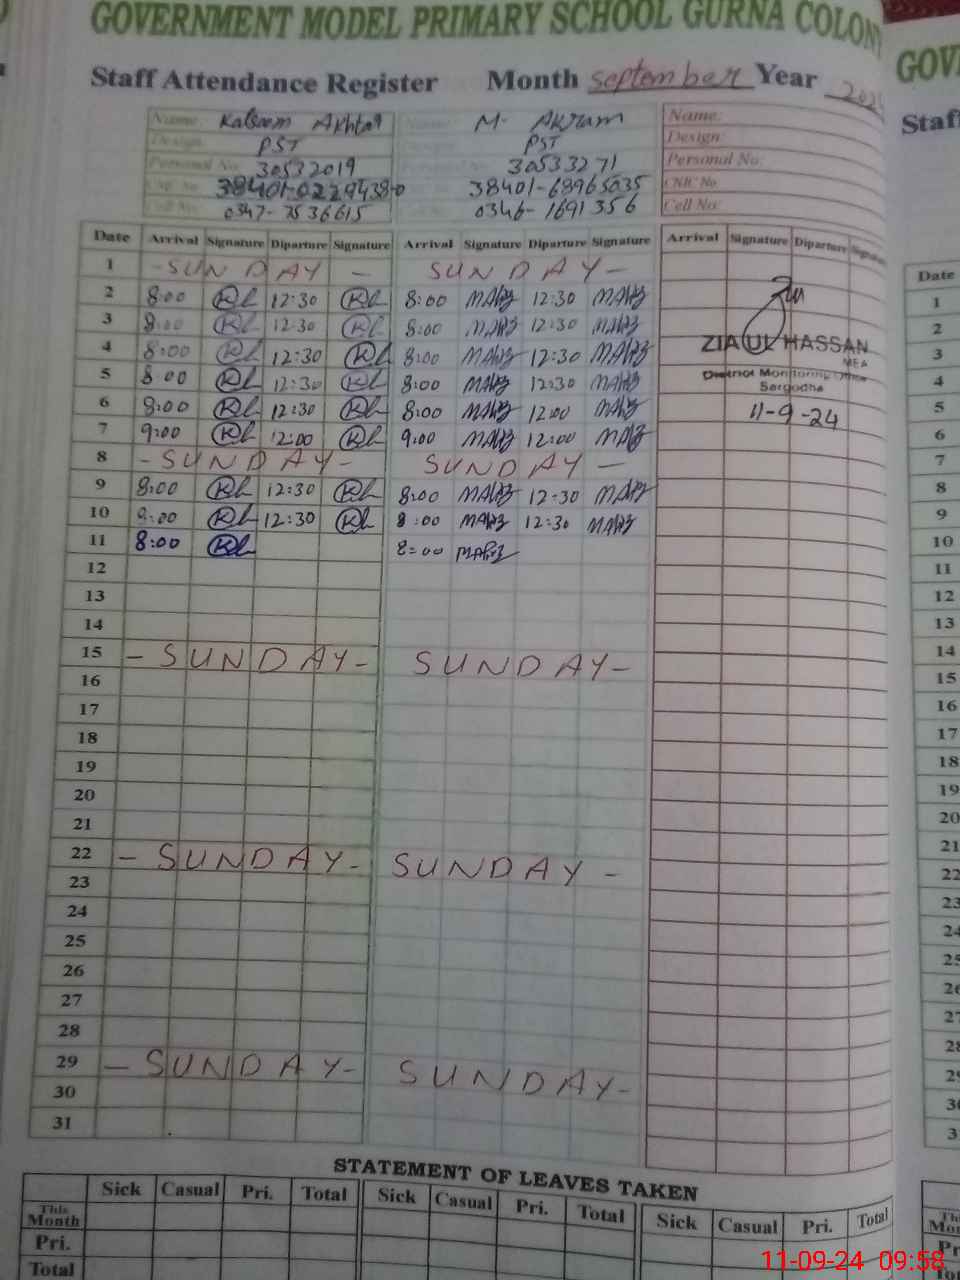 GOVERNMENT MODEL PRIMARY SCHOOL GURNA COLONY
Staff Attendance Register Month September Year 202
Name: Kalseem Akhtar M. Akram Name:
Design: PST PST Design:
Personal No. 30532019 30533271 Personal No:
38401-0229438-0 38401-68965035 CNIC No
Cell No: 0347-7536615 0346-1691356 Cell No:
Date Arrival Signature Diparture Signature Arrival Signature Diparture Signature Arrival Signature Diparture Signature
1 - SUNDAY - SUNDAY -
2 8:00 12:30 8:00 12:30
3 8:00 12:30 8:00 12:30
4 8:00 12:30 8:00 12:30
5 8:00 12:30 8:00 12:30
6 8:00 12:30 8:00 12:00
7 9:00 12:00 9:00 12:00
8 - SUNDAY - SUNDAY -
9 8:00 12:30 8:00 12:30
10 8:00 12:30 8:00 12:30
11 8:00 8=00
12
13
14
15 - SUNDAY - SUNDAY -
16
17
18
19
20
21
22 - SUNDAY - SUNDAY -
23
24
25
26
27
28
29 - SUNDAY - SUNDAY -
30
31
ZIA UL HASSAN
MEA
District Monitoring Office
Sargodha
11-9-24
STATEMENT OF LEAVES TAKEN
Sick Casual Pri. Total Sick Casual Pri. Total Sick Casual Pri. Total
This Month
Pri.
Total
GOV
Staf
Date
1
2
3
4
5
6
7
8
9
10
11
12
13
14
15
16
17
18
19
20
21
22
23
24
25
26
27
28
29
30
3
11-09-24 09:58